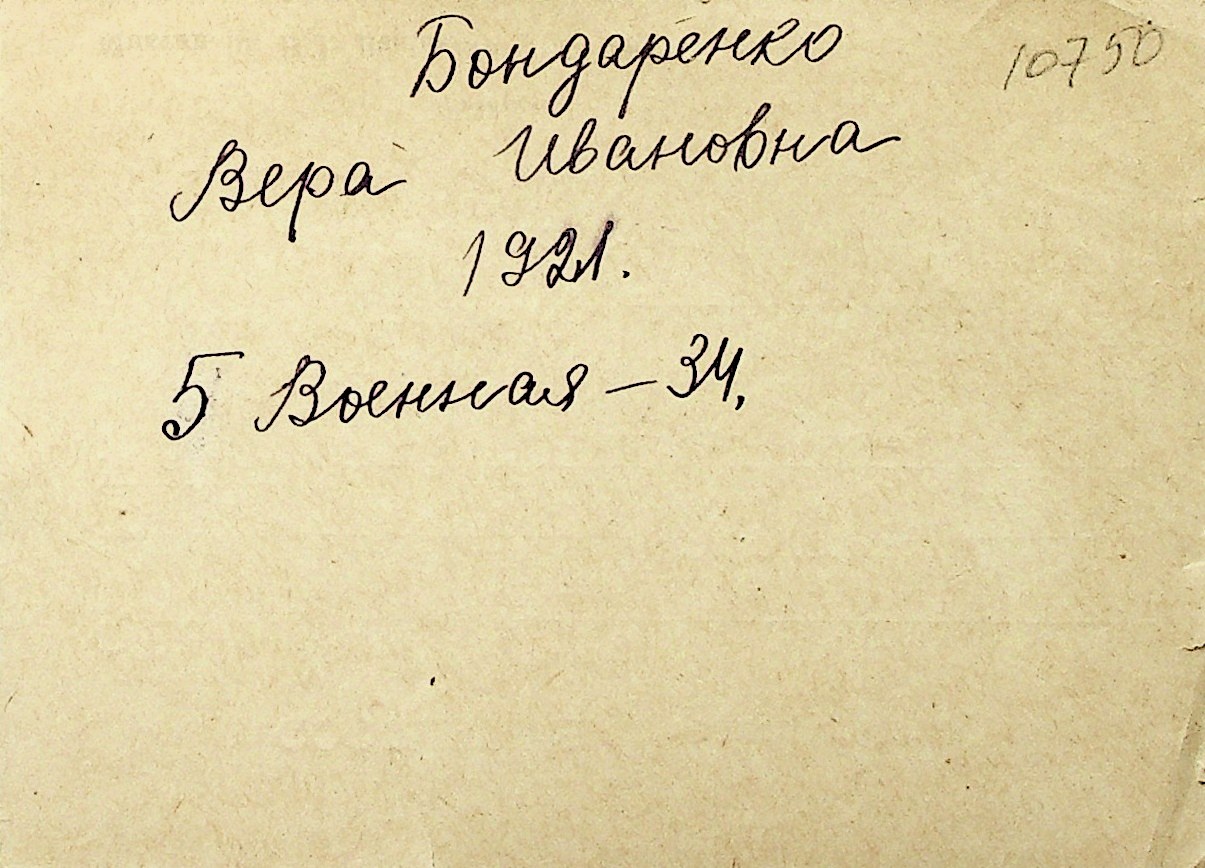 Бондаренко
10750
Вера Ивановна
1921.
5 Военная – 34.